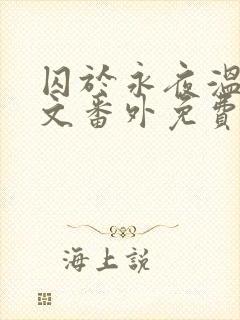 囚於永夜溫
文番外免費
海上説